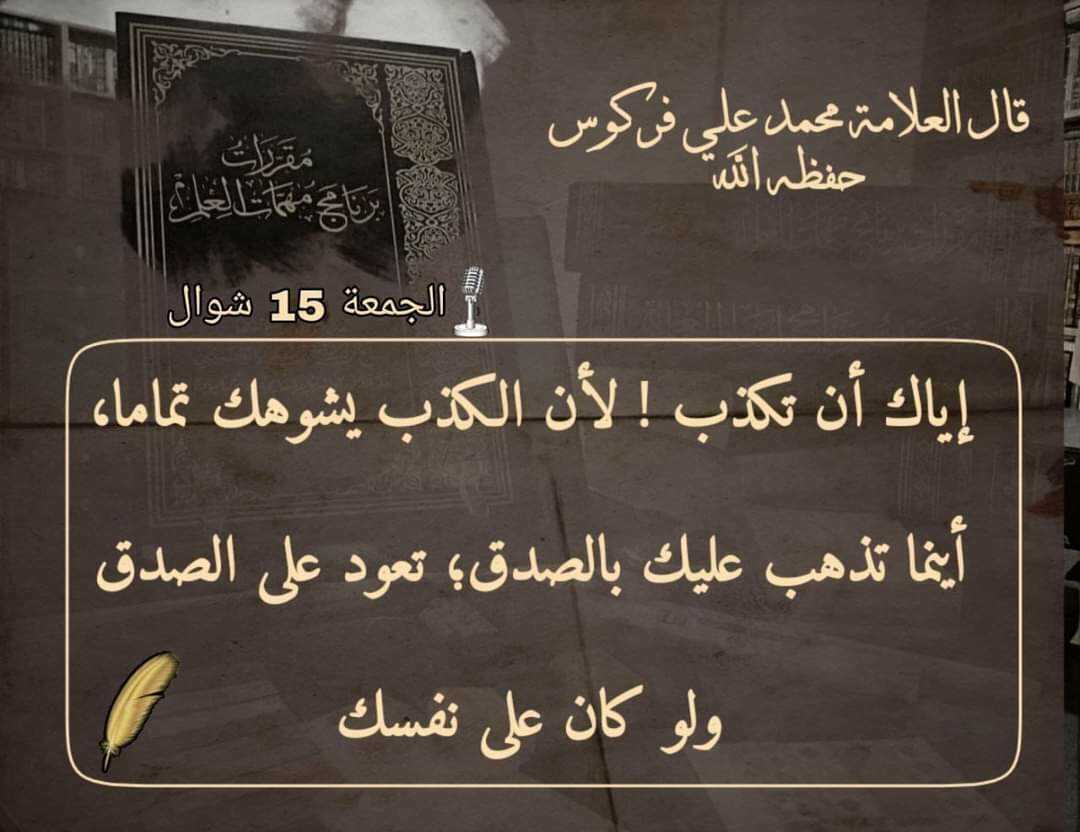 قال العلامة محمد علي فركوس
حفظه الله
مقررات
برنامج مهمات العلم
الجمعة 15 شوال
إياك أن تكذب ! لأن الكذب يشوهك تماما،
أينما تذهب عليك بالصدق؛ تعود على الصدق
ولو كان على نفسك